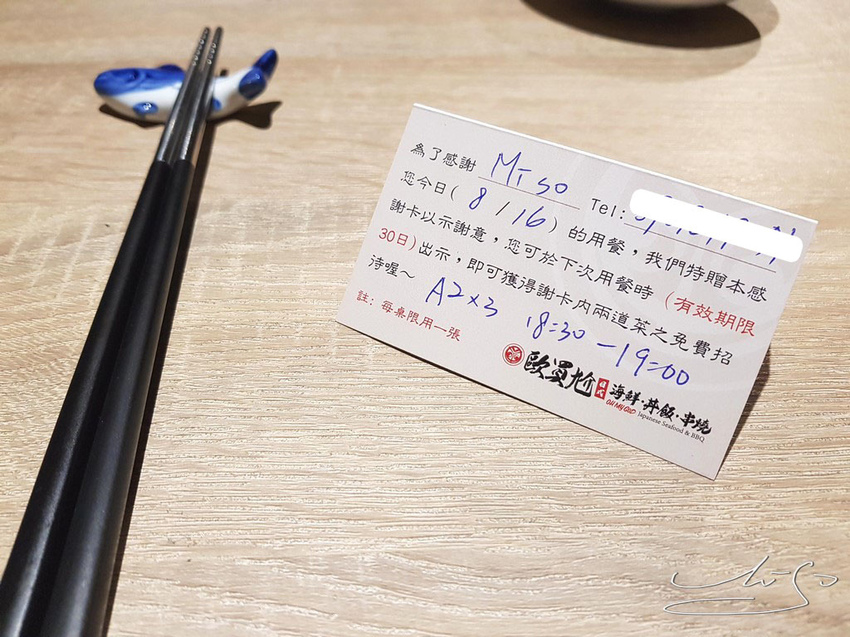 為了感謝 Miso Tel:
您今日( 8 / 16 ) 的用餐，我們特贈本感
謝卡以示謝意，您可於下次用餐時（有效期限
30日)出示，即可獲得謝卡內兩道菜之免費招
待喔～ A2x3 18:30 - 19:00
註：每桌限用一張
歐買尬 海鮮·丼飯·串燒
OH MY GOD Japanese Seafood & BBQ
Miso